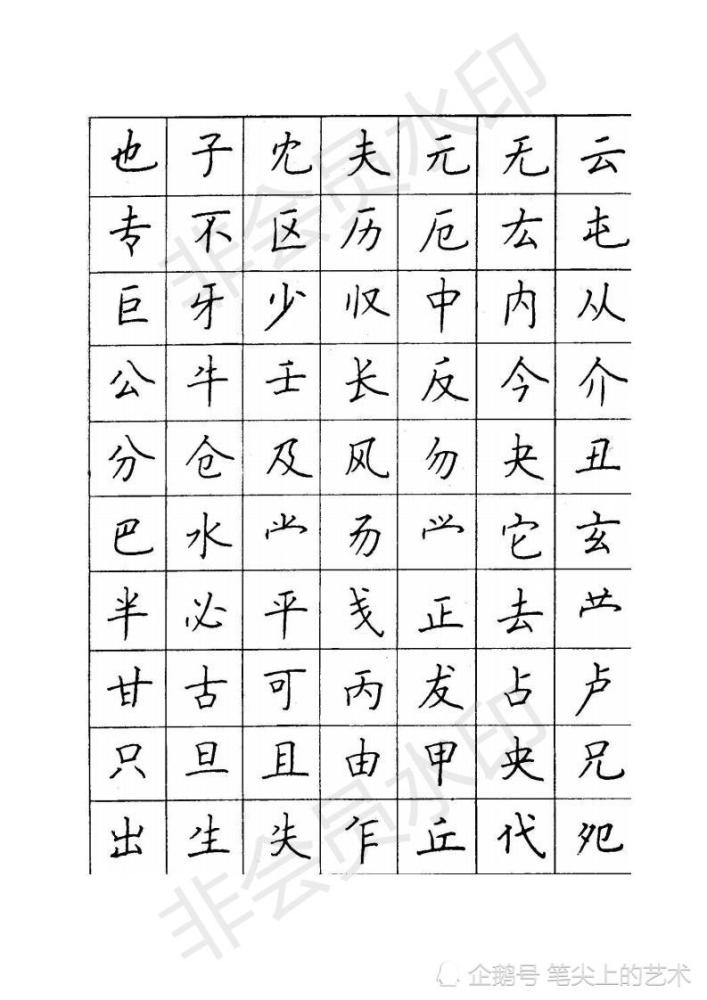 也 子 冘 夫 元 无 云
专 不 区 历 厄 厷 屯
巨 牙 少 収 中 内 从
公 牛 壬 长 反 今 介
分 仓 及 风 勿 夬 丑
巴 水 它 玄
半 必 平 戋 正 去
甘 古 可 丙 发 占 卢
只 旦 且 由 甲 央 兄
出 生 失 乍 丘 代 夗
非会员水印
非会员水印
企鹅号 笔尖上的艺术